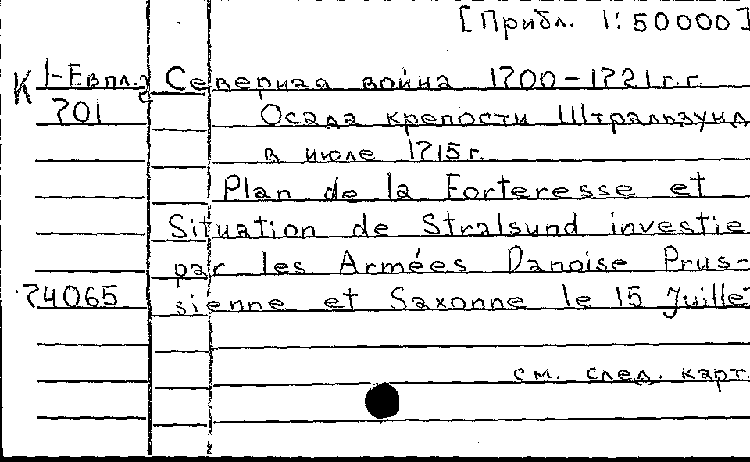 [Прибл. 1:50000]
К 1-Евпл.2 Северная война 1700-1721г.г.
701 Осада крепости Штральзунд
в июле 1715г.
Plan de la Forteresse et
Situation de Stralsund investie
par les Armées Danoise Prus-
74065 sienne et Saxonne le 15 Juillet
см. след. карт.